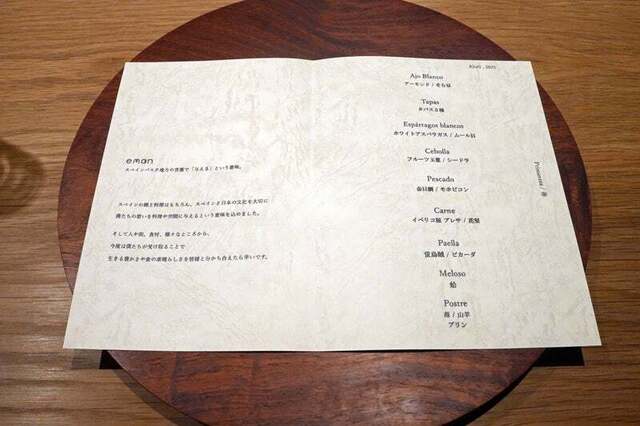 eman
スペインバスク地方の言葉で「与える」という意味。
スペインの料理はもちろん、スペインと日本の文化を大切に
僕たちの想いを料理や空間に与えるという意味を込めました。
そして人や街、食材、様々なところから、
今度は僕たちが受け取ることで
生きる豊かさや食の素晴らしさを皆様と分かち合えたら幸いです。
Ajo Blanco
アーモンド / そら豆
Tapas
タパス5種
Espárragos blancos
ホワイトアスパラガス / ムール貝
Cebolla
フルーツ玉葱 / シードラ
Pescado
/ モホピコン
Carne
イベリコ豚 プレサ /
Paella
蛍烏賊 / ピカーダ
Meloso
蛤
Postre
苺 / 山羊
プリン
Primavera / 春